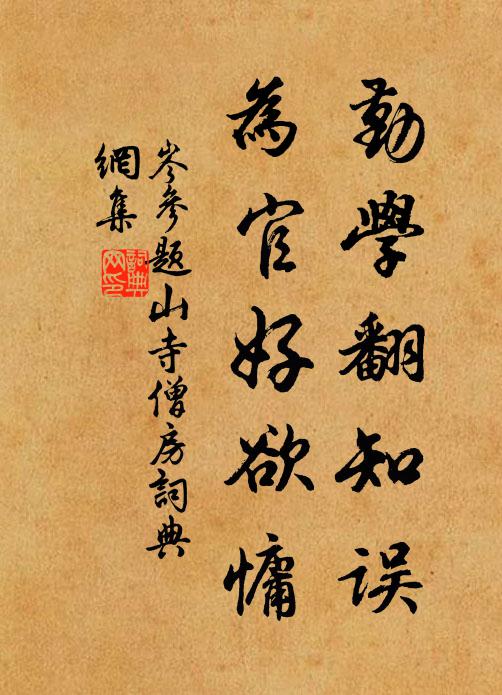 勤學翻知误
為官好欲慵
岑參題山寺僧房詞典
網集
詞典网印